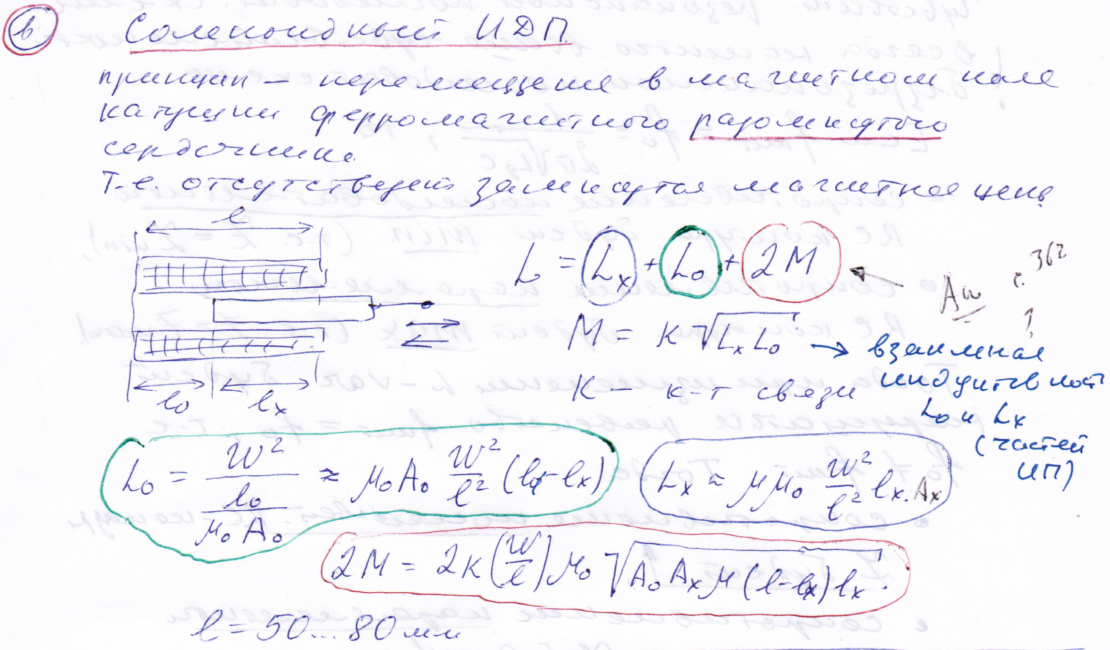 в) Соленоидный ИДП
принцип – перемещение в магнитном поле
катушки ферромагнитного разомкнутого
сердечника.
Т.е. отсутствует замкнутая магнитная цепь
l
L = Lx + L0 + 2M
Аш с. 362
?
M = K √(Lx L0) → взаимная
индуктивность
L0 и Lx
(частей
ИП)
K – к-т связи
l0 lx
L0 = W² / (l0 / (μ0 A0)) ≈ μ0 A0 W²/l² (l – lx)
Lx ≈ μμ0 W²/l² lx · Ax
2M = 2K (W/l) μ0 √(A0 Ax μ (l – lx) lx).
l = 50...80 мм